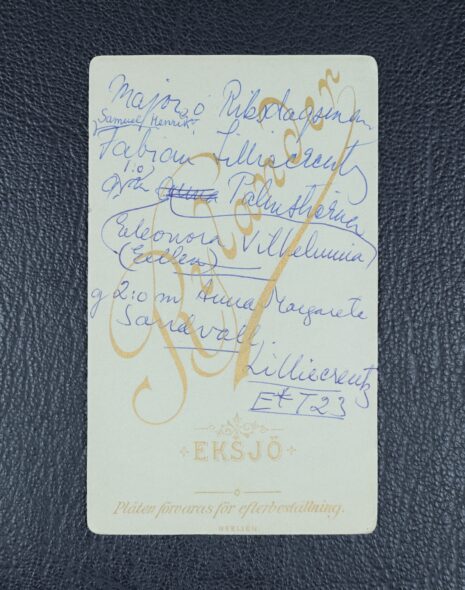 Major o Riksdagsman
Samuel Henrik
Fabian Lilliecreutz
g 1:o Anna Palmstierna
(Eleonora Vilhelmina
(Ellen)
g 2:o m Anna Margareta
Sandvall
Lilliecreutz
E* T23
Rylander
EKSJÖ
Plåten förvaras för efterbeställning.